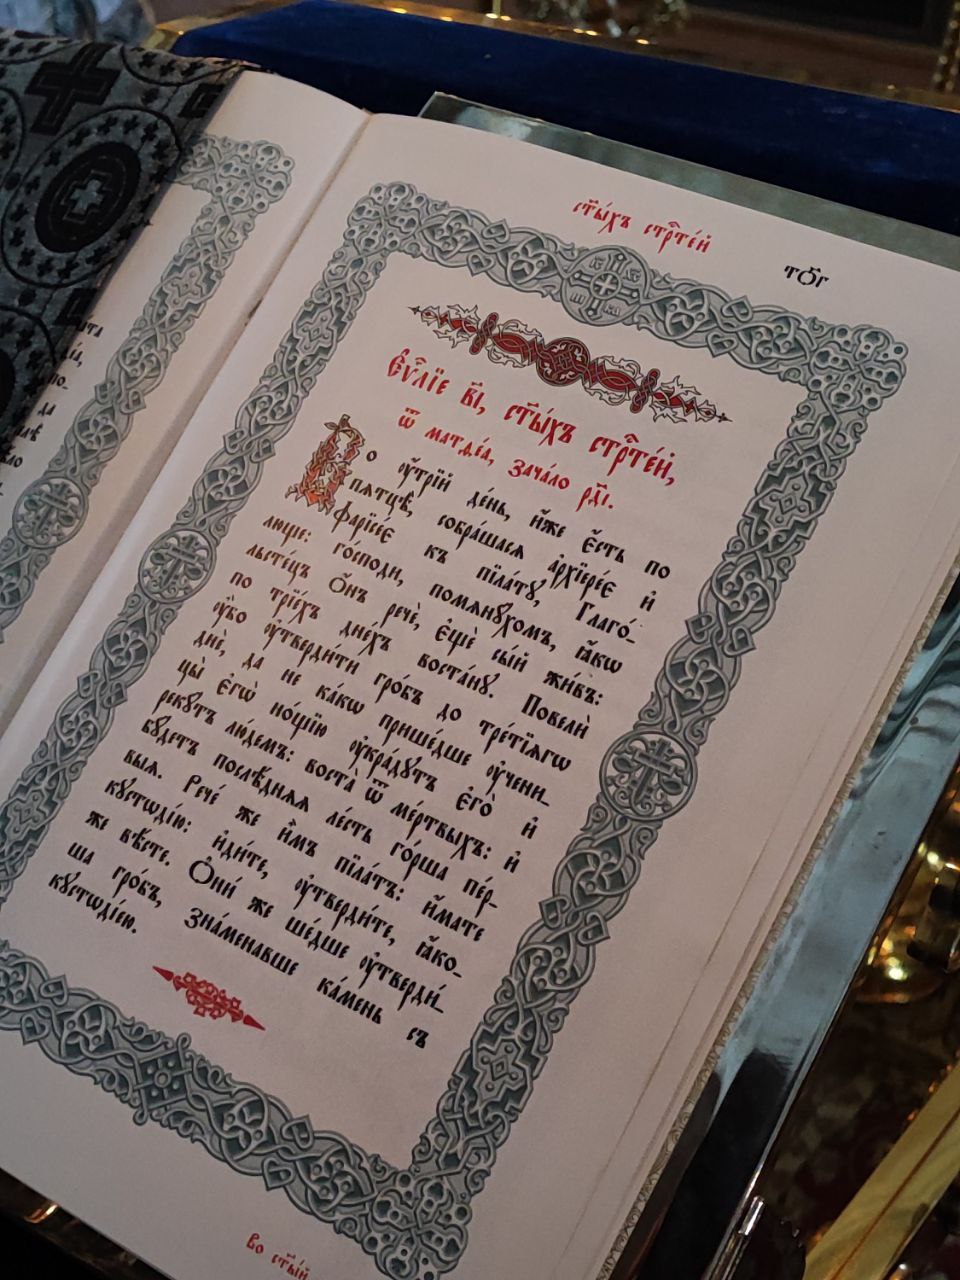 ст҃ы́хъ стрⷭ҇те́й
тѻ҃г
Є҆ѵⷢ҇лїе в҃і, ст҃ы́хъ стрⷭ҇те́й,
ѿ матѳе́а, зача́ло рд҃і.
Во ѹ҆́трїй де́нь, и҆́же є҆́сть по
пѧтцѣ̀, собра́шасѧ а҆рхїере́є и҆
фарїсе́є къ пїла́тꙋ, Глаго́-
люще: го́споди, помѧнꙋ́хомъ, ꙗ҆́кѡ
льсте́цъ Ѻ҆́нъ речѐ, є҆щѐ сы́й жи́въ:
по трїе́хъ дне́хъ воста́нꙋ. Повелѝ
ѹ҆̀бо ѹ҆тверди́ти гро́бъ до тре́тїѧгѡ
днѐ, да не ка́кѡ прише́дше ѹ҆чени-
цы̀ є҆гѡ̀ но́щїю ѹ҆кра́дꙋтъ є҆го̀ и҆
рекꙋ́тъ лю́демъ: воста̀ ѿ ме́ртвыхъ: и҆
бꙋ́детъ послѣ́днѧѧ ле́сть го́рша пе́р-
выѧ. Рече́ же и҆̀мъ пїла́тъ: и҆́мате
кꙋстѡді́ю: и҆ди́те, ѹ҆тверди́те, ꙗ҆́ко-
же вѣ́сте. Ѻ҆ни́ же ше́дше ѹ҆тверди́-
ша гро́бъ, зна́менавше ка́мень съ
кꙋстѡді́ею.
во ст҃ы́й